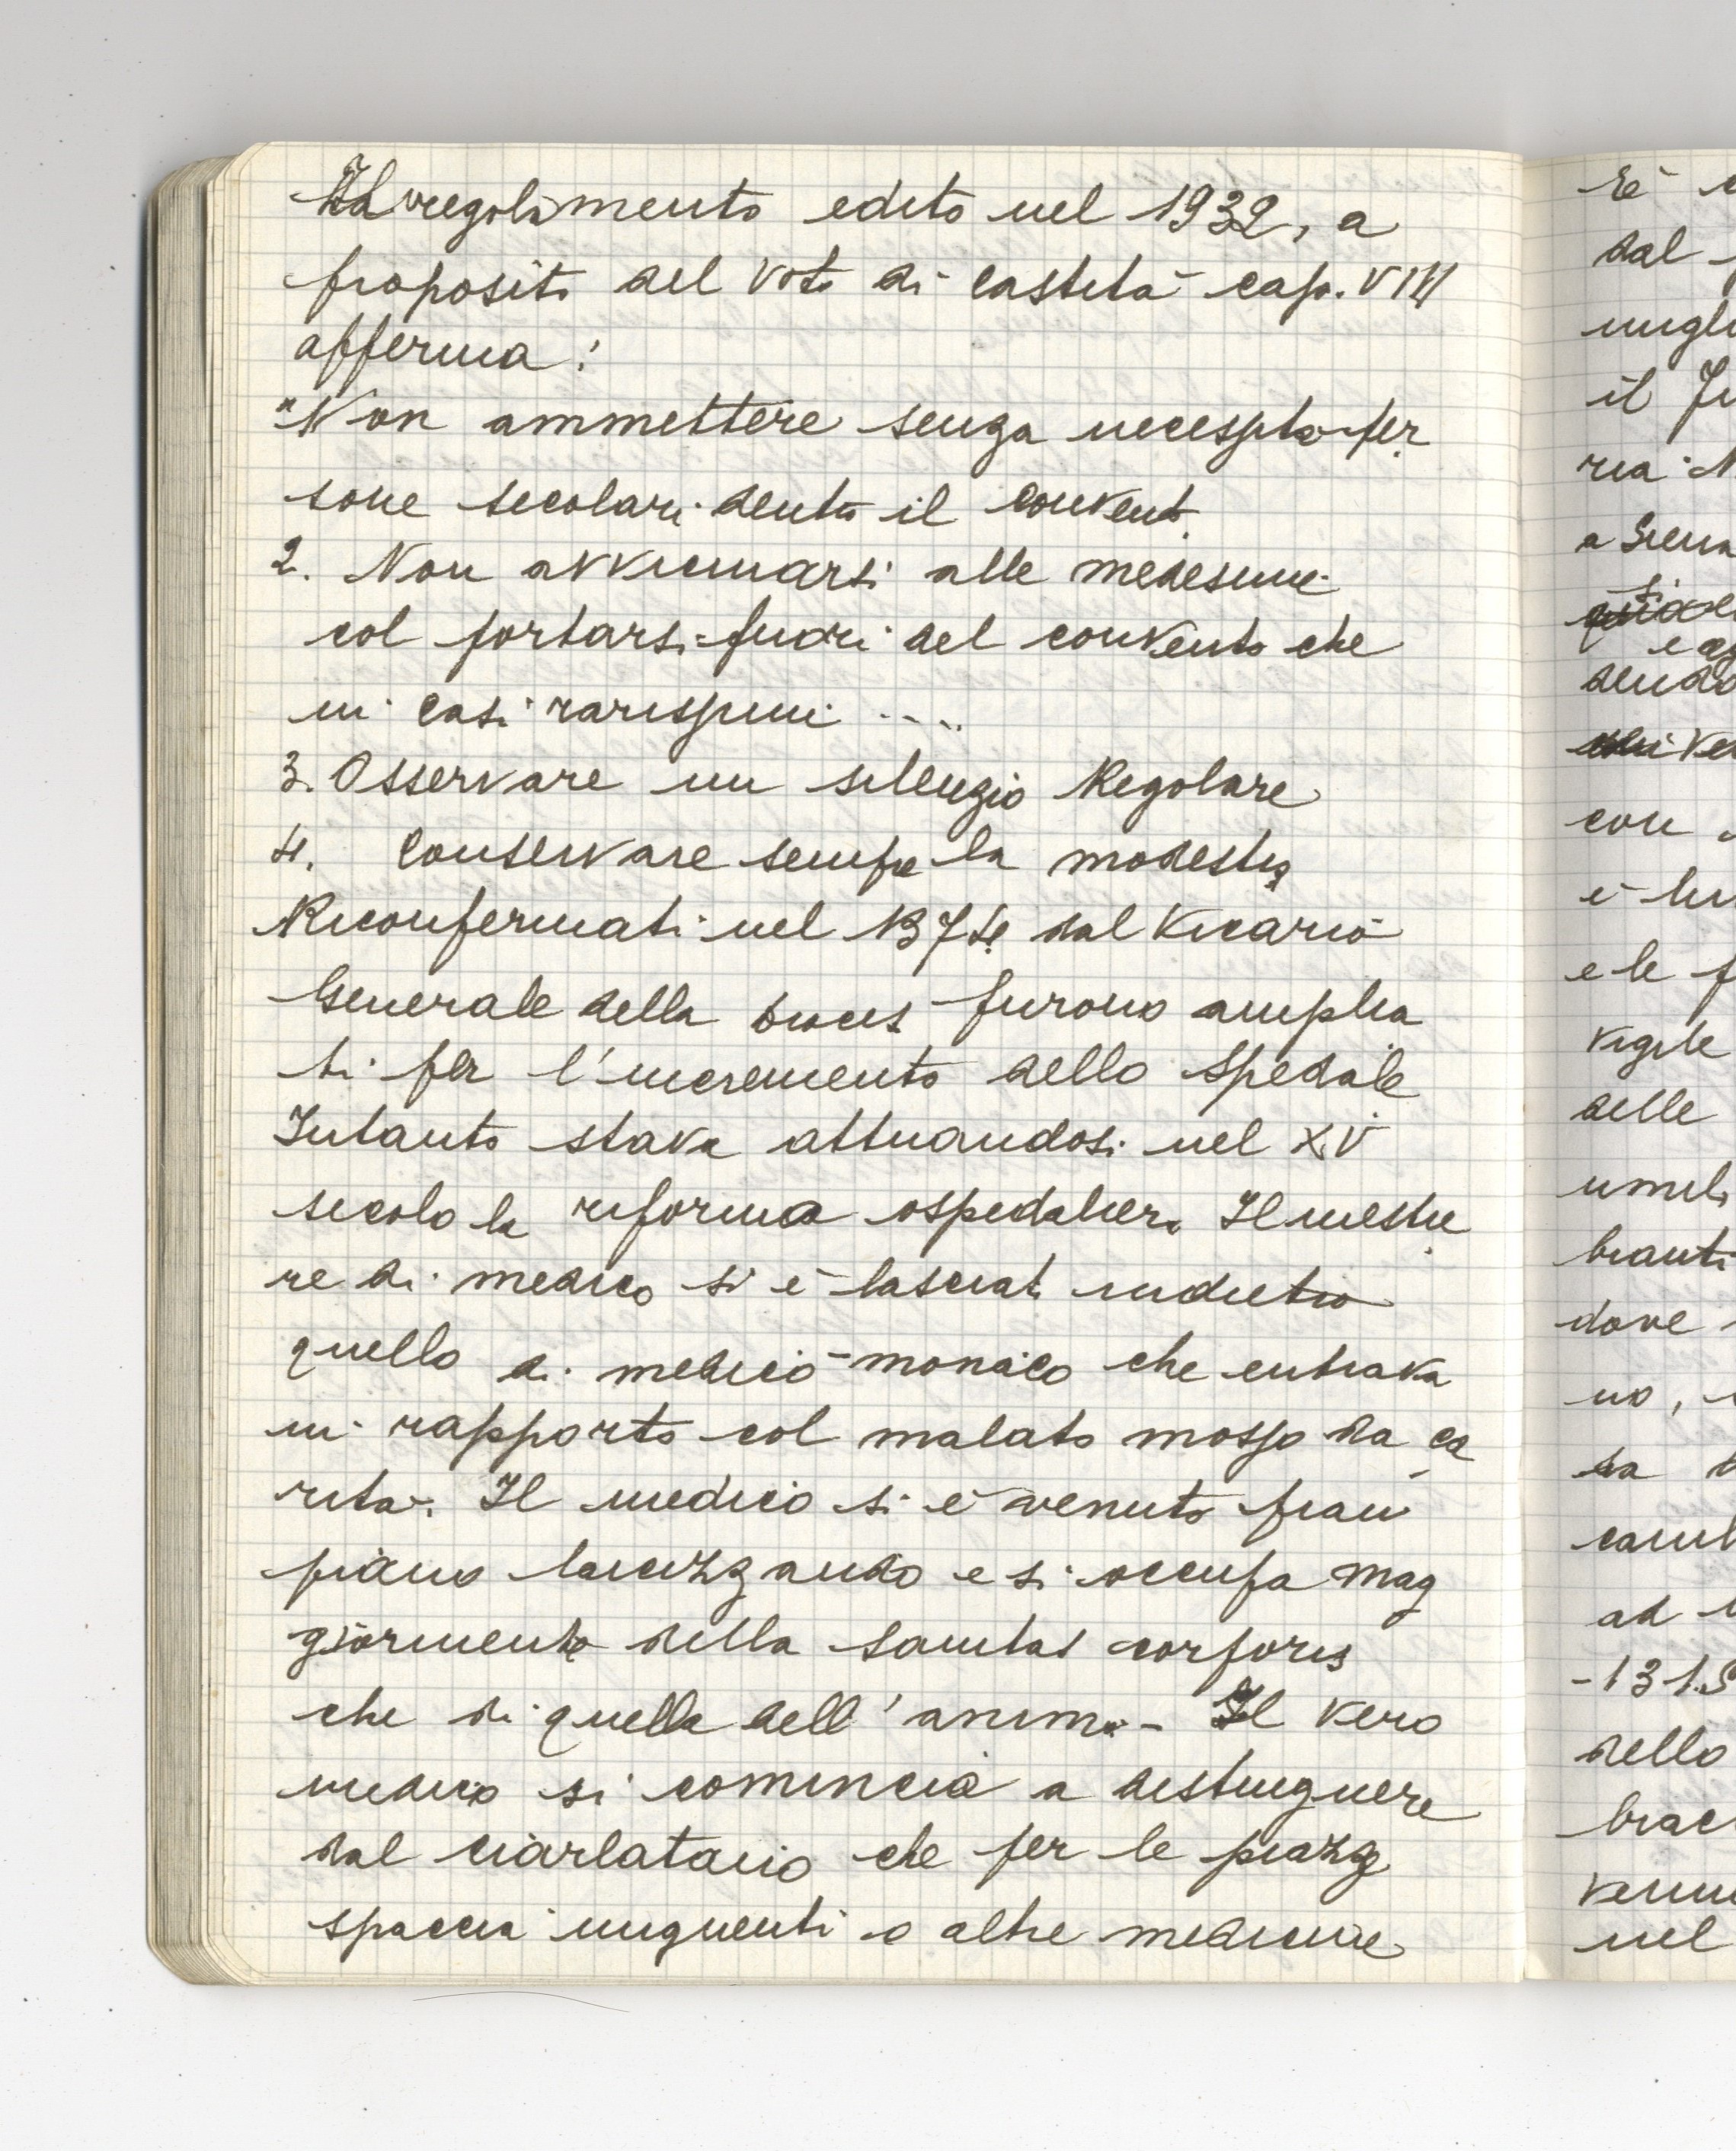 Il regolamento edito nel 1932, a
proposito del voto di castità cap. VIII
afferma:
"Non ammettere senza necessità per
sone secolari dentro il convento
2. Non avvicinarsi alle medesime
col portarsi fuori del convento che
in casi rarissimi ....
3. Osservare un silenzio Regolare
4. Conservare sempre la modestia
Riconfermati nel 1374 dal Vicario
Generale della dioces furono amplia
ti per l'incremento dello spedale
Intanto stava attuandosi nel XV
secolo la riforma ospedaliera Il mestie
re di medico si è lasciato indietro
quello di medico-monaco che entrava
in rapporto col malato mosso da ca
rità. Il medico si è venuto pian
piano laicizzando e si occupa mag
giormente della sanitas corporis
che di quella dell'anima - Il vero
medico si comincia a distinguere
dal ciarlatano che per le piazze
spaccia unguenti o altre medicine
è
dal
il
ria
a Siena
con
è
e le
vigile
delle
umili
dove
no,
ad
-131
dello
nel